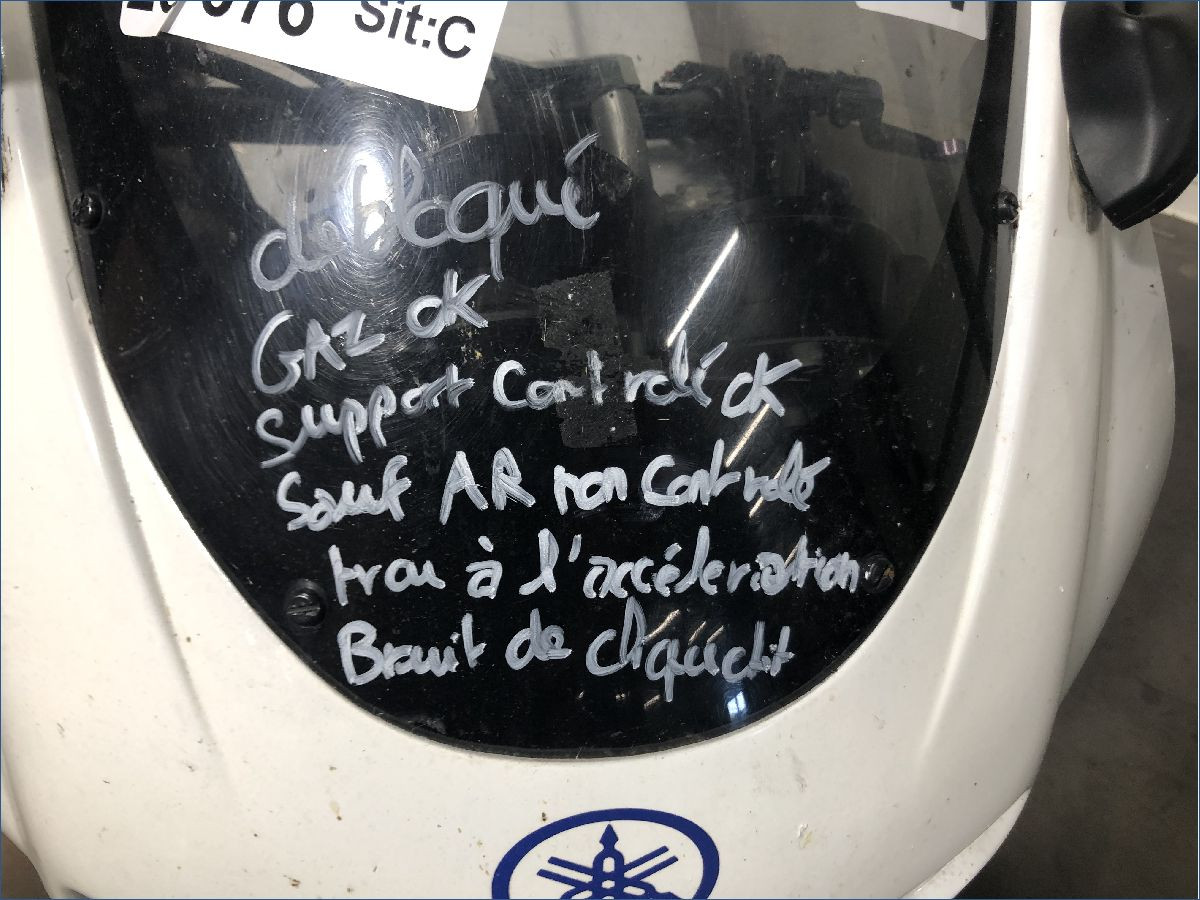 076 Sit:C
débloqué
GAZ OK
support Controlé OK
Sauf AR non Controlé
trou à l'accéleration
Bruit de cliquetit